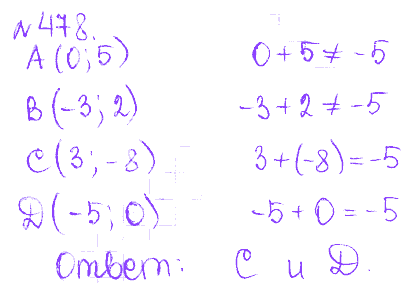 №478.
А(0;5) 0+5≠-5
В(-3;2) -3+2≠-5
С(3;-8) 3+(-8)=-5
D(-5;0) -5+0=-5
Ответ: С и D.